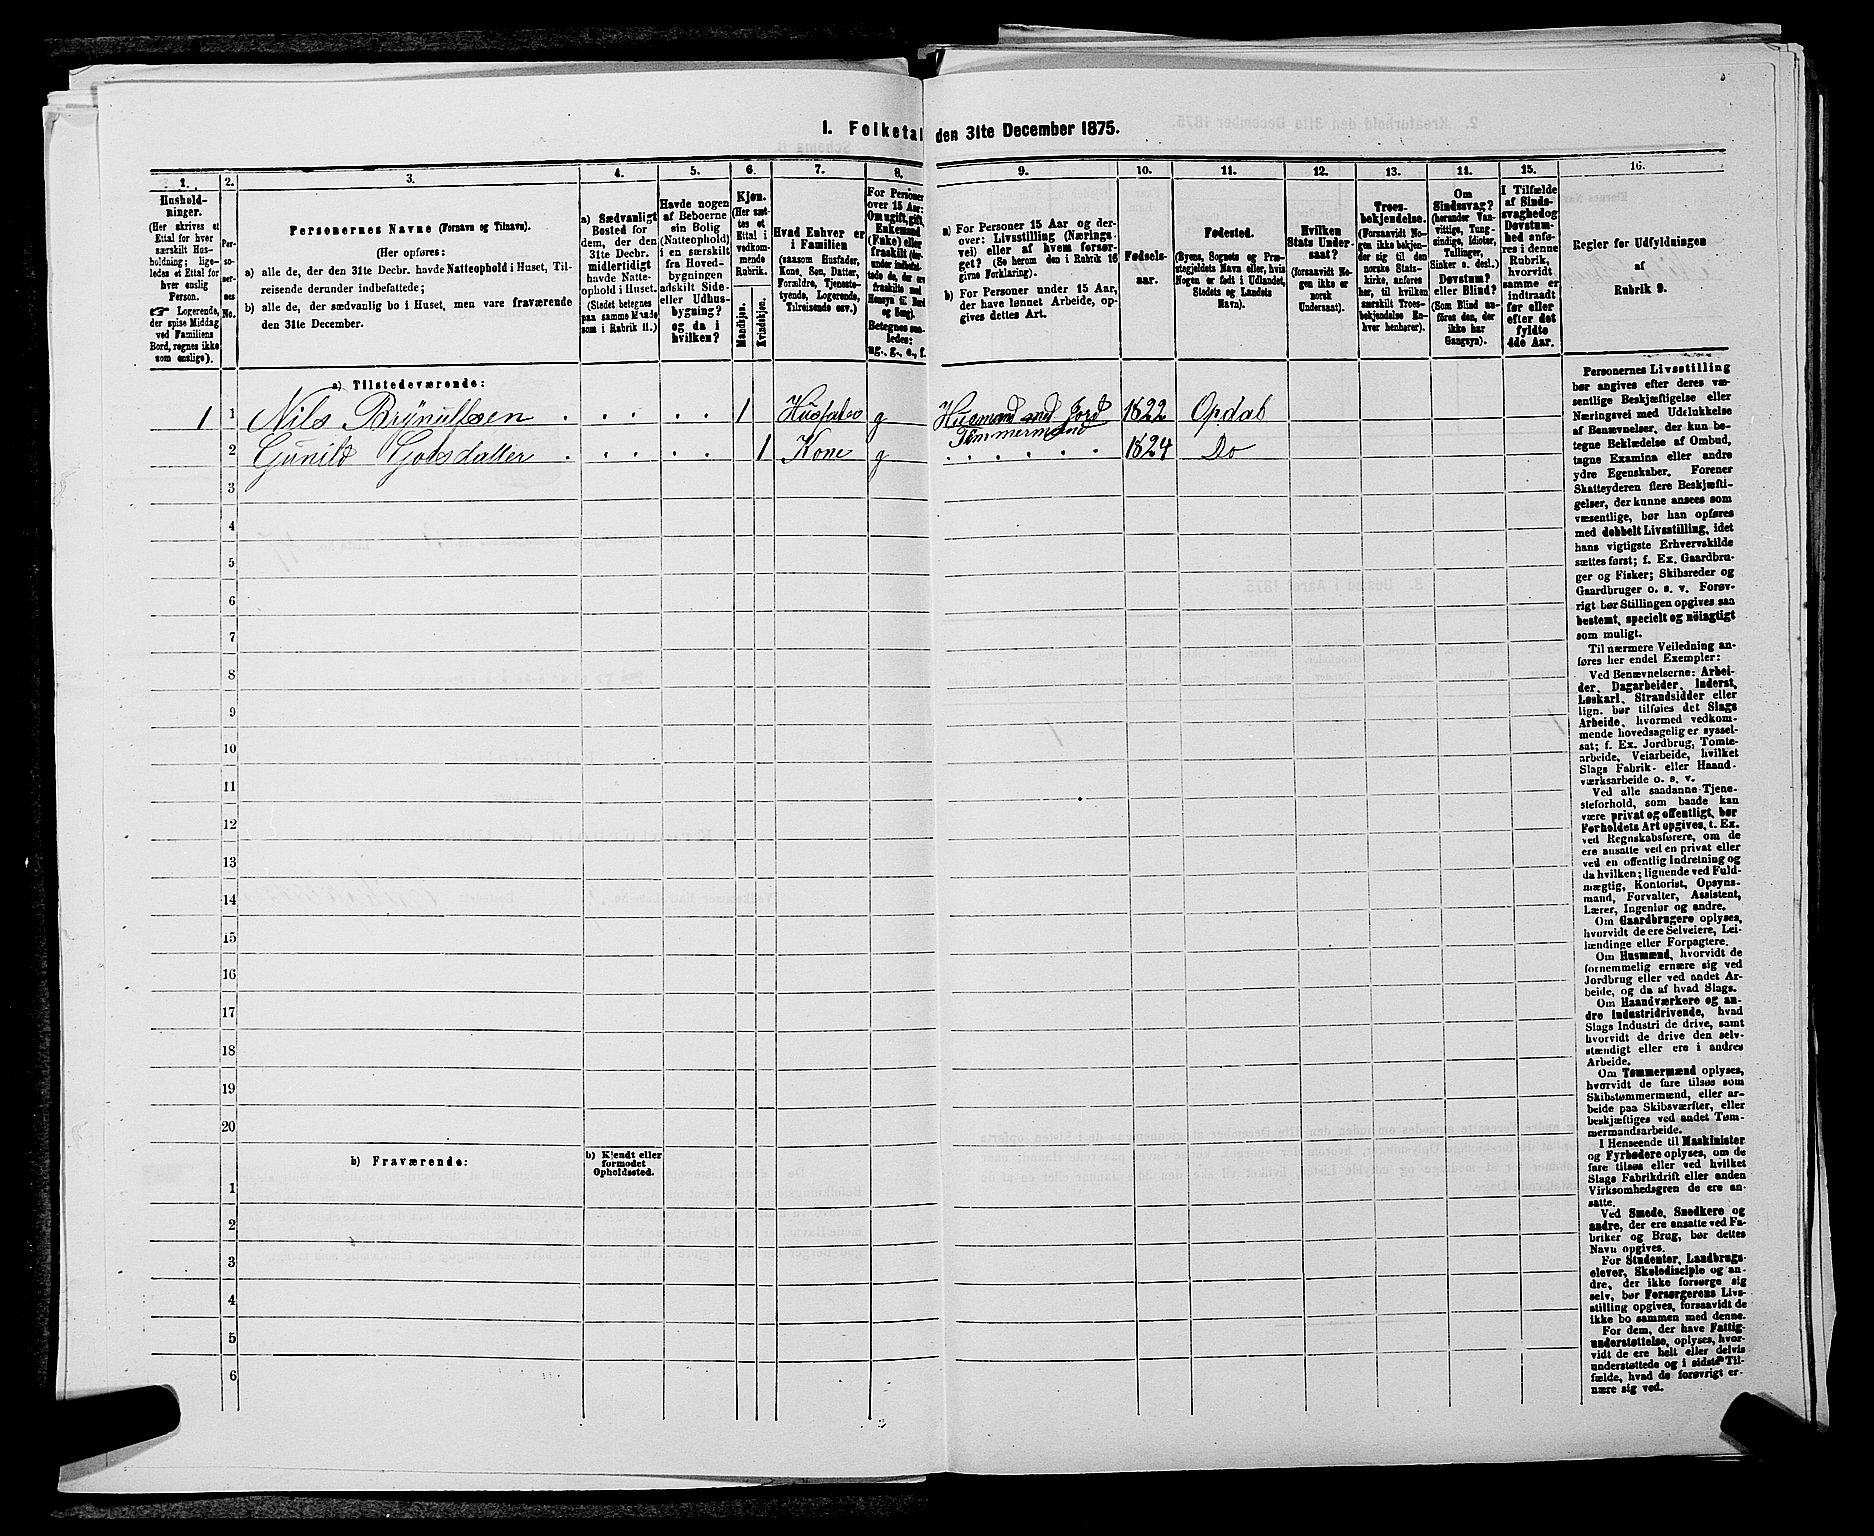 I. Folketal den 31te December 1875.
1. 2. 3. 4. 5. 6. 7. 8. 9. 10. 11. 12. 13. 14. 15. 16.
Hushold-
ninger.
(Her skrives et
Ettal for hver
særskilt Hus-
holdning; lige-
ledes et Ettal for
hver enslig
Person.
☞ Logerende,
der spise Middag
ved Familiens
Bord, regnes ikke
som enslige).
Per-
so-
ner-
nes
No.
Personernes Navne (Fornavn og Tilnavn).
(Her opføres:
a) alle de, der den 31te Decbr. havde Natteophold i Huset, Til-
reisende derunder indbefattede;
b) alle de, der sædvanlig bo i Huset, men vare fraværende
den 31te December.
a) Sædvanligt
Bosted for
dem, der den
31te Decbr.
midlertidigt
havde Natte-
ophold i Huset.
(Stedet betegnes
paa samme Maade
som i Rubrik 11.)
Havde nogen
af Beboerne
sin Bolig
(Natteophold)
i en særskilt
fra Hoved-
bygningen
adskilt Side-
eller Udhus-
bygning?
og da i
hvilken?
Kjøn.
(Her sæt-
tes et
Ettal i
vedkom-
mende
Rubrik.
Mandkjøn.
Kvindekjøn.
Hvad Enhver er
i Familien
(saasom Husfader,
Kone, Søn, Datter,
Forældre, Tjeneste-
tyende, Logerende,
Tilreisende osv.)
For Personer
over 15 Aar:
Om ugift, gift,
Enkemand
(Enke) eller
fraskilt (der-
under indbefat-
tede de, der ere
fraskilte med
Hensyn til Bord
og Seng).
Betegnes saa-
ledes:
ug., g., e., f.
a) For Personer 15 Aar og der-
over: Livsstilling (Nærings-
vei) eller af hvem forsør-
get? (Se herom den i Rubrik 16
givne Forklaring).
b) For Personer under 15 Aar,
der have lønnet Arbeide, op-
gives dettes Art.
Fødsels-
aar.
Fødested.
(Byens, Sognets og Præ-
stegjeldets Navn eller, hvis
Nogen er født i Udlandet,
Stedets og Landets
Navn).
Hvilken
Stats Under-
saat?
(forsaavidt No-
gen ikke er
norsk
Undersaat).
Troes-
bekjendelse.
(Forsaavidt No-
gen ikke bekjen-
der sig til den
norske Stats-
kirke, anføres
her, til hvilken
særskilt Troes-
bekjendelse En-
hver henhører).
Om
Sindssvag?
(herunder Van-
vittige, Tung-
sindige, Idioter,
Tullinger,
Sinker o. desl.)
Døvstum?
eller Blind?
(Som Blind an-
føres den, der
ikke har
Gangsyn).
I Tilfælde
af Sinds-
svaghed og
Døvstum-
hed anfø-
res i denne
Rubrik,
hvorvidt
samme er
indtraadt
før eller
efter det
fyldte
4de Aar.
Regler for Udfyldningen
af
Rubrik 9.
a) Tilstedeværende:
1 1 Nils Brynulfsen 1 Husfader g Husmand med Jord 1822 Opdal
Tømmermand
2 Gunild 1 Kone g 1824 Do
3
4
5
6
7
8
9
10
11
12
13
14
15
16
17
18
19
20
b) Fraværende:
b) Kjendt eller
formodet
Opholdssted.
1
2
3
4
5
6
Personernes Livsstilling
bør angives efter deres væ-
sentlige Beskjæftigelse eller
Næringsvei med Udelukkelse
af Benævnelser, der kun be-
tegne Beklædelse af Ombud,
tagne Examina eller andre
ydre Egenskaber. Forener
Skatteyderen flere Beskjæfti-
gelser, der kunne ansees som
væsentlige, bør han opføres
med dobbelt Livsstilling, idet
hans vigtigste Erhvervskilde
sættes først; f. Ex. Gaardbru-
ger og Fisker; Skibsreder og
Gaardbruger o. s. v. Forøv-
rigt bør Stillingen opgives saa
bestemt, specielt og nøiagtigt
som muligt.
Til nærmere Veiledning an-
føres her endel Exempler:
Ved Benævnelserne: Arbei-
der, Dagarbeider, Inderst,
Løskarl, Strandsidder eller
lign. bør tilføies det Slags
Arbeide, hvormed vedkom-
mende hovedsagelig er syssel-
sat; f. Ex. Jordbrug, Tomte-
arbeide, Veiarbeide, hvilket
Slags Fabrik- eller Haand-
værksarbeide o. s. v.
Ved alle saadanne Tjene-
steforhold, som baade kan
være privat og offentligt, bør
Forholdets Art opgives, t. Ex.
ved Regnskabsførere, om de
ere ansatte ved en privat eller
ved en offentlig Indretning og
da hvilken; lignende ved Fuld-
mægtig, Kontorist, Opsyns-
mand, Forvalter, Assistent,
Lærer, Ingeniør og andre.
Om Gaardbrugere oplyses,
hvorvidt de ere Selveiere, Lei-
lændinge eller Forpagtere.
Om Husmænd, hvorvidt de
fornemmelig ernære sig ved
Jordbrug eller ved andet Ar-
beide, og da af hvad Slags.
Om Haandværkere og an-
dre Industridrivende, hvad
Slags Industri de drive, samt
hvorvidt de drive den selv-
stændigt eller ere i andres
Arbeide.
Om Tømmermænd oplyses,
hvorvidt de fare tilsøs som
Skibstømmermænd, eller ar-
beide paa Skibsværfter, eller
beskjæftiges ved andet Tøm-
mermandsarbeide.
I Henseende til Maskinister
og Fyrbødere oplyses, om de
fare tilsøs eller ved hvilket
Slags Fabrikdrift eller anden
Virksomhedsgren de ere an-
satte.
Ved Smede, Snedkere og
andre, der ere ansatte ved Fa-
briker og Brug, bør dettes
Navn opgives.
For Studenter, Landbrugs-
elever, Skoledisciple og an-
dre, der ikke forsørge sig
selv, bør Forsørgerens Livs-
stilling opgives, forsaavidt de
ikke bo sammen med denne.
For dem, der have Fattig-
understøttelse, oplyses, hvor-
vidt de ere helt eller delvis
understøttede og i sidste Til-
fælde, hvad de forøvrigt er-
nære sig ved.